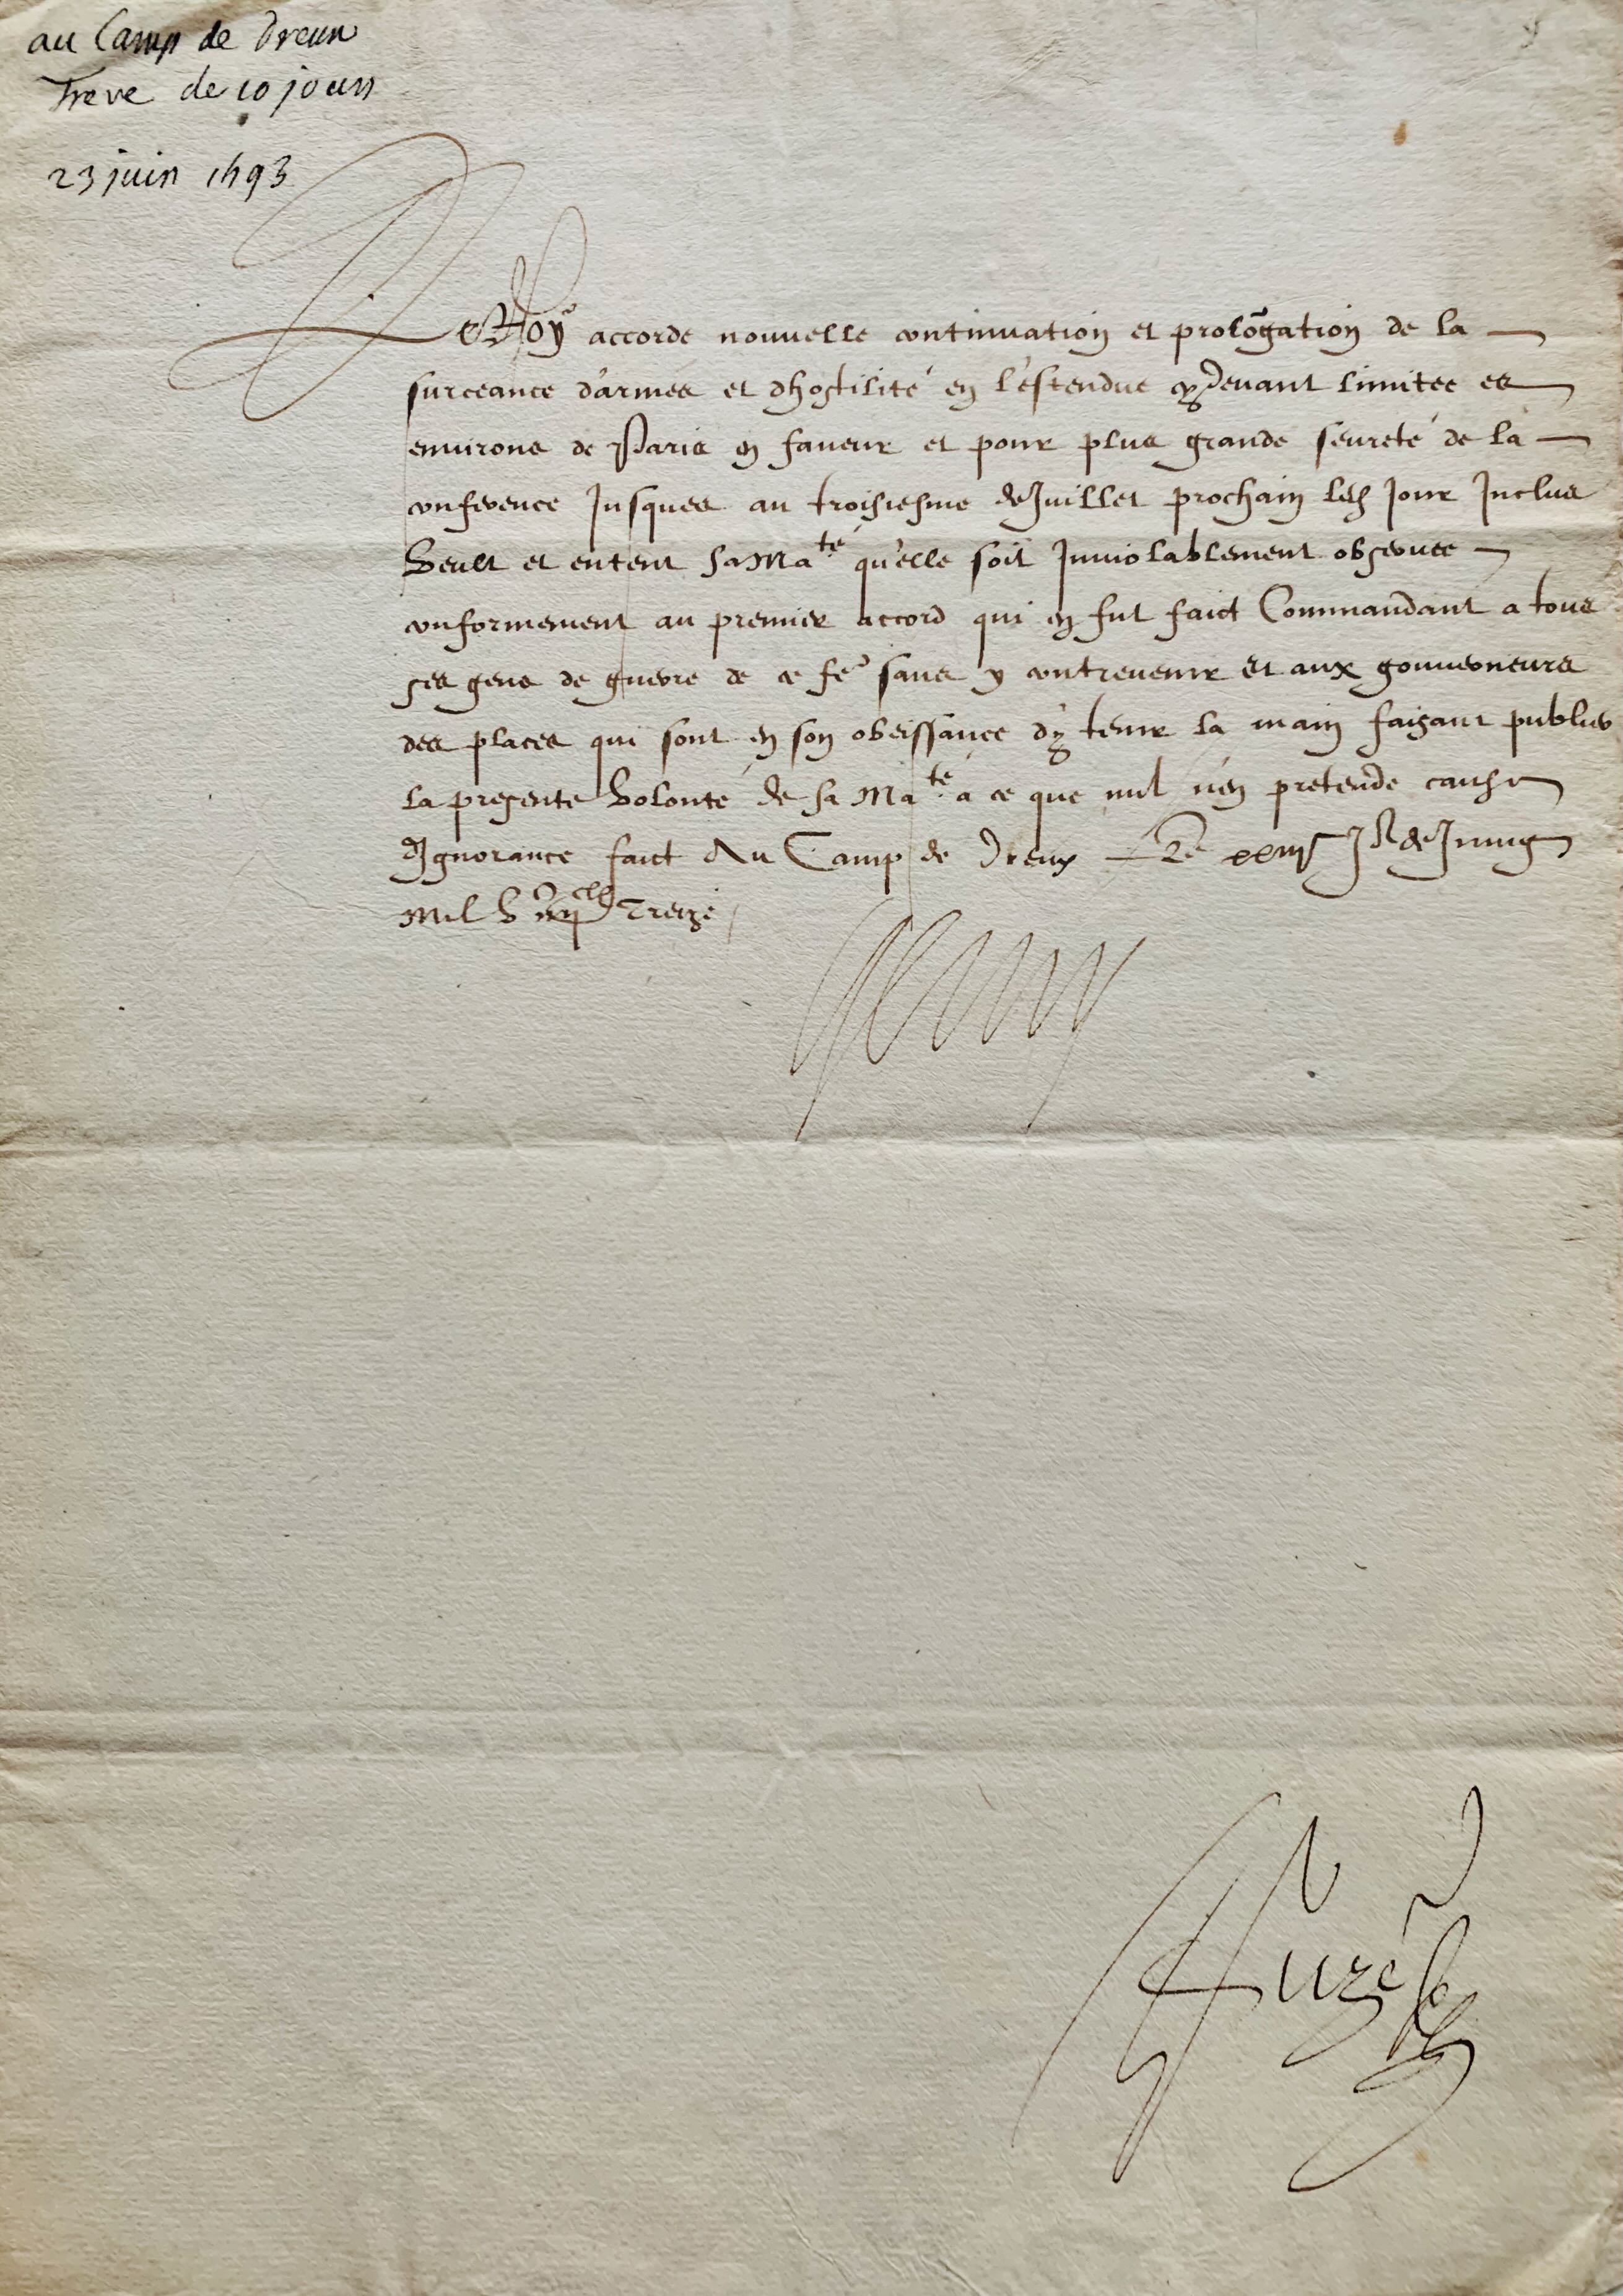 au Camp de Dreux
Treve de 10 jours
23 juin 1593
Le Roy accorde nouvelle continuation et prolõgation de la
surceance d'armes et dhostilité en l'estendue cy devant limitee es
environs de Paris en faveur et pour plus grande seureté de la
conference Jusques au troisiesme de Juillet prochain led Jour Inclus
Veult et entent sa Ma.té qu'elle soit Inviolablement observee
conformement au premier accord qui en fut faict Commandant a tous
ses gens de guerre de ce fe sans y contrevenir et aux gouverneurs
des places qui sont en son obeissance d'y tenir la main faisant publier
la presente volonté de sa Ma.té a ce que nul n'en pretende cause
d'Ignorance faict Au Camp de Dreux Le xxiije Jor de Juing
Mil V c iiijxx Treize
Henry
Ruzé